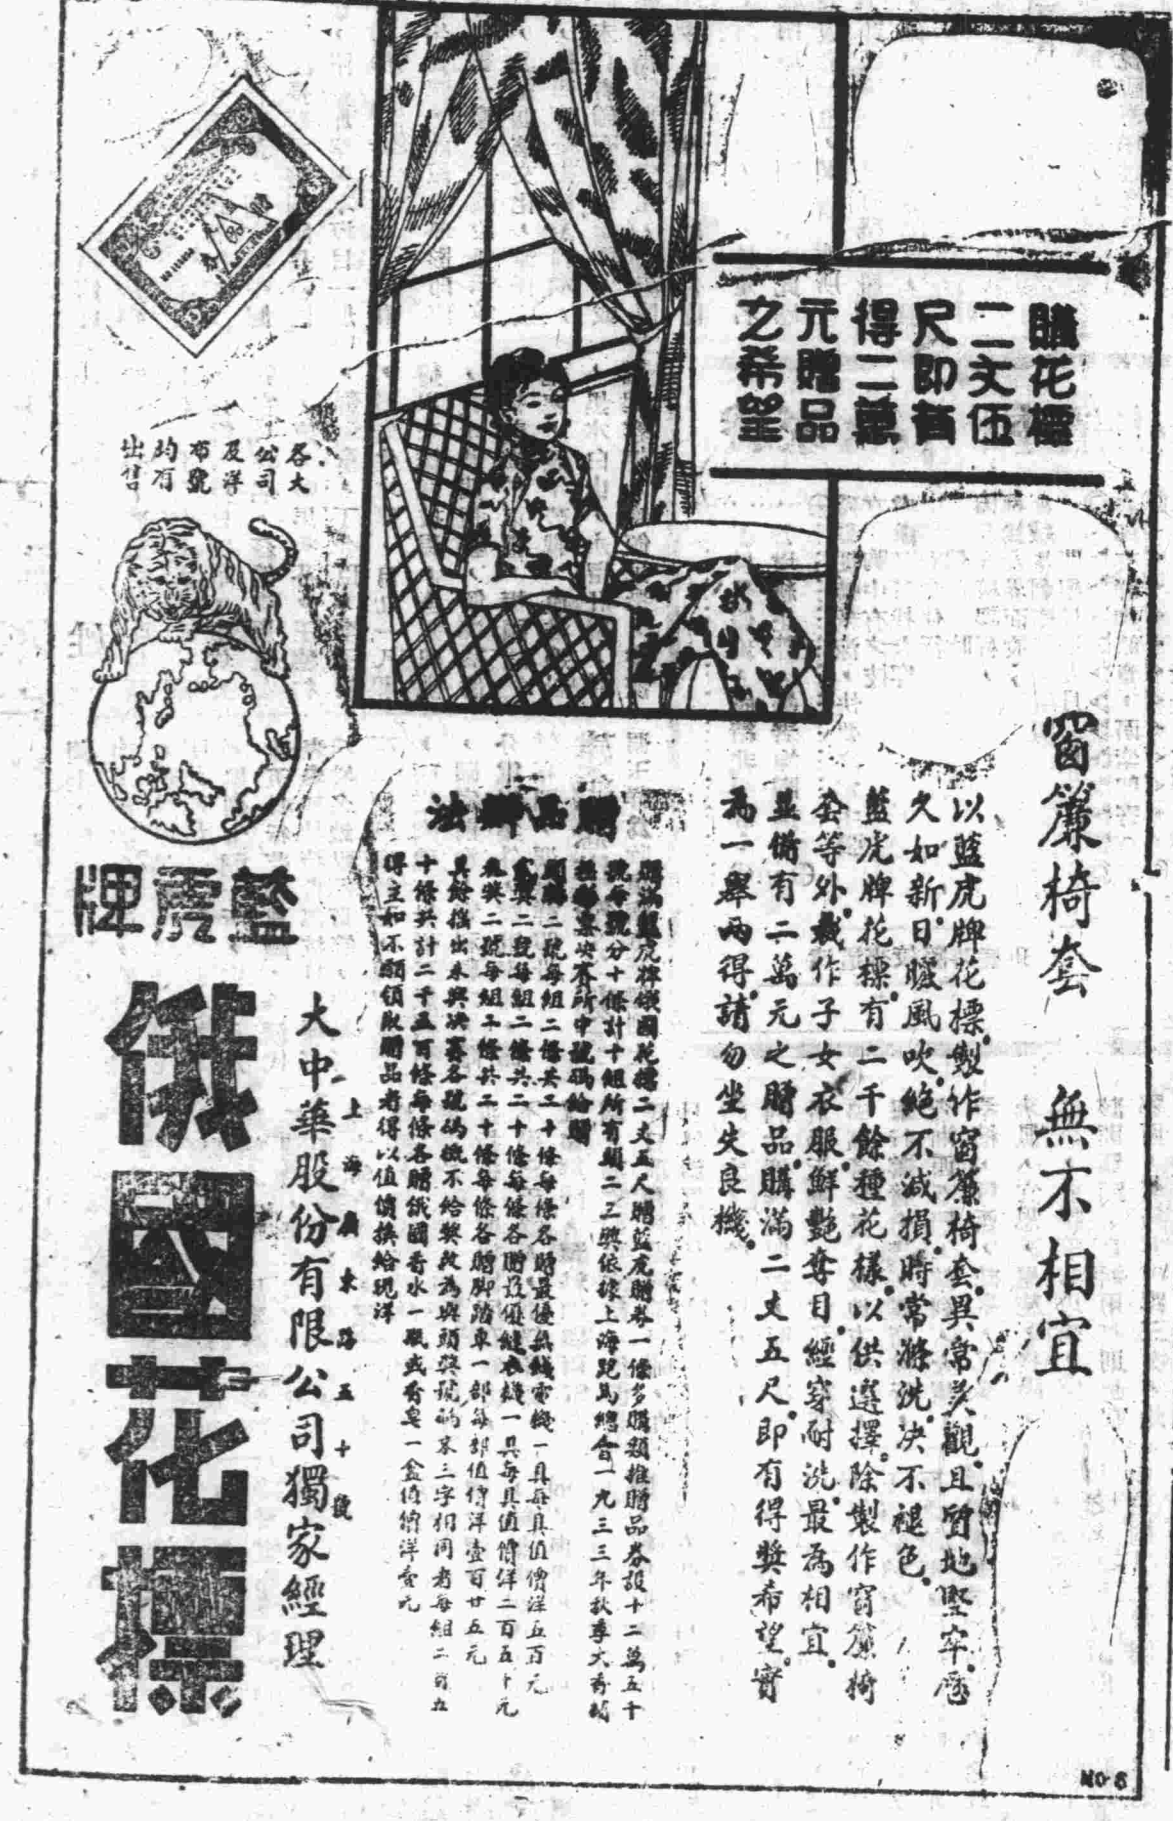 購花標
二丈伍
尺即有
得二萬
元贈品
之希望
窗簾椅套 無不相宜
以藍虎牌花標。製作窗簾椅套。異常美觀。且質地堅牢。歷
久如新。日曬風吹。絕不減損。時常滌洗。決不褪色。
藍虎牌花標。有二千餘種花樣。以供選擇。除製作窗簾椅
套等外。裁作子女衣服。鮮艷奪目。經穿耐洗。最為相宜。
並備有二萬元之贈品。購滿二丈五尺。即有得獎希望。實
為一舉兩得。請勿坐失良機。
贈品辦法
購滿藍虎牌俄國花標二丈五尺贈藍虎贈券一條多購類推贈品券設十二萬五千
號每號分十條計十組所有頭二三獎依據上海跑馬總會一九三三年秋季大香檳
決賽所中號碼給贈
二號每組二條共二十條每條各贈最優無綫電機一具每具值價洋五百元
獎二號每組二條共二十條每條各贈設備縫衣機一具每具值價洋二百五十元
獎二號每組二條共二十條每條各贈脚踏車一部每部值價洋壹百廿五元
其餘搖出未與決賽各號碼概不給獎改為與頭獎號碼末三字相同者每組二百五
十條共計二千五百條每條各贈俄國香水一瓶或香皂一盒值價洋壹元
得主如不願領取贈品者得以值價換給現洋
上海廣東路五十號
大中華股份有限公司獨家經理
各大
公司
及洋
布號
均有
出售
藍虎牌
俄國花標
NO-8